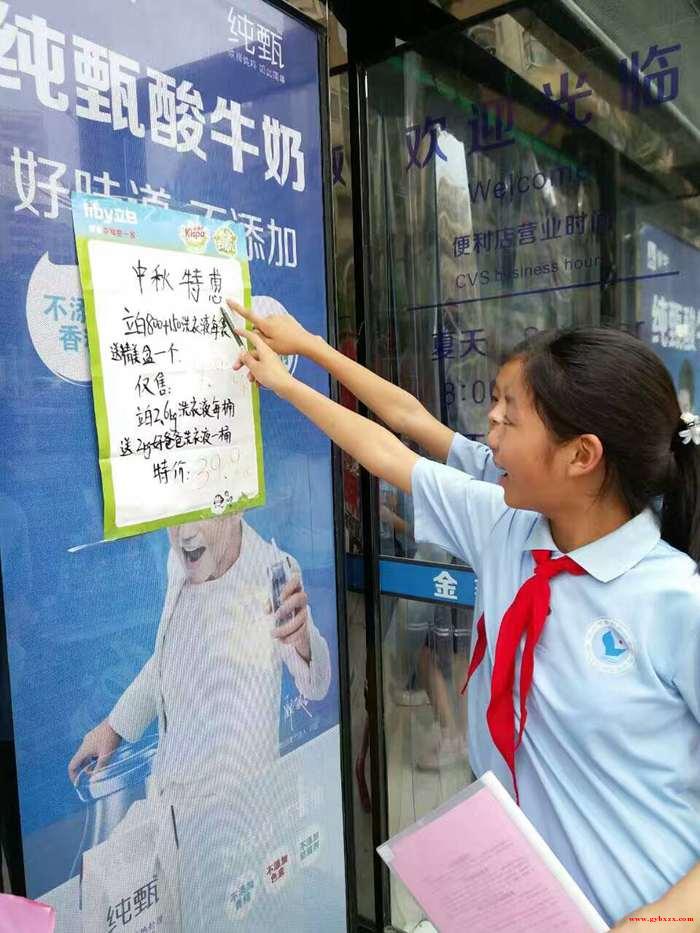 纯甄
纯甄酸牛奶
好味道 不添加
不添
香
liby立白
Kispa
中秋特惠
立白800+150洗衣液每袋
送精美盆一个
仅售:
立白2.6kg洗衣液每桶
送2kg好爸爸洗衣液一桶
特价:39.9
欢迎光临
Welcome
便利店营业时间
CVS business hour
夏天
8:0
金
纯甄
不添加
色素
不添加
不添加
www.gybxzx.com